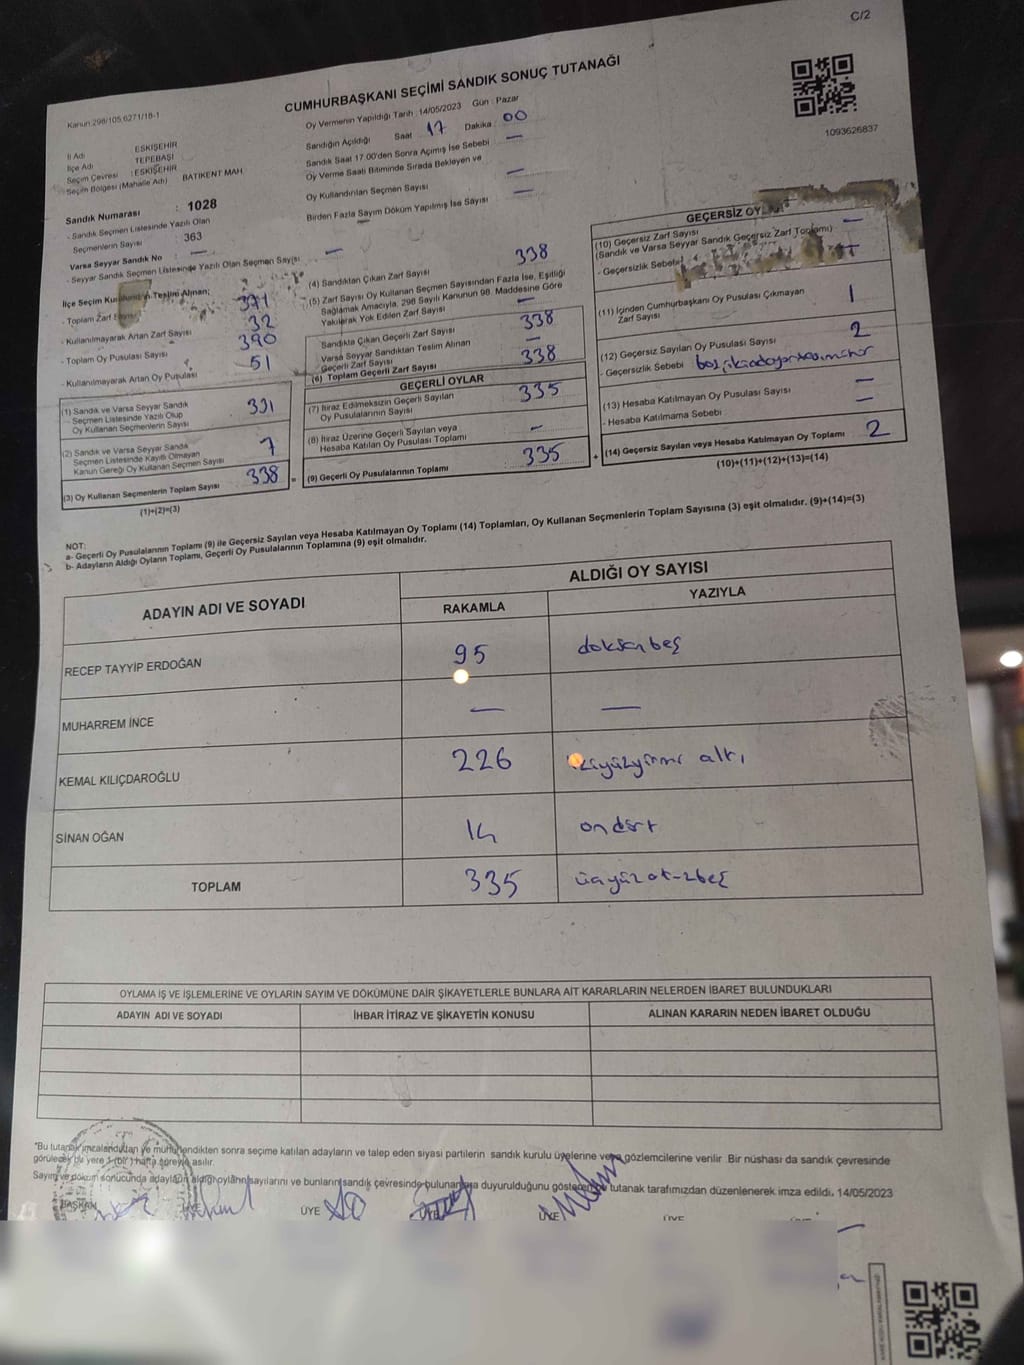 C/2
CUMHURBAŞKANI SEÇİMİ SANDIK SONUÇ TUTANAĞI
Kanun 298/105,6271/18-1
1093626837
İl Adı : ESKİŞEHİR
İlçe Adı : TEPEBAŞI
Seçim Çevresi : ESKİŞEHİR
Seçim Bölgesi (Mahalle Adı) BATIKENT MAH
Sandık Numarası : 1028
- Sandık Seçmen Listesinde Yazılı Olan
Seçmenlerin Sayısı : 363
Varsa Seyyar Sandık No : —
- Seyyar Sandık Seçmen Listesinde Yazılı Olan Seçmen Sayısı —
Oy Vermenin Yapıldığı Tarih : 14/05/2023 Gün : Pazar
Sandığın Açıldığı Saat 17 Dakika : 00
Sandık Saat 17.00'den Sonra Açılmış İse Sebebi —
Oy Verme Saati Bitiminde Sırada Bekleyen ve
Oy Kullandırılan Seçmen Sayısı —
Birden Fazla Sayım Döküm Yapılmış İse Sayısı —
İlçe Seçim Teslim Alınan;
- Toplam Zarf 371
- Kullanılmayarak Artan Zarf Sayısı 32
- Toplam Oy Pusulası Sayısı 390
- Kullanılmayarak Artan Oy Pusulası 51
(1) Sandık ve Varsa Seyyar Sandık
Seçmen Listesinde Yazılı Olup
Oy Kullanan Seçmenlerin Sayısı 331
(2) Sandık ve Varsa Seyyar Sandık
Seçmen Listesinde Kayıtlı Olmayan
Kanun Gereği Oy Kullanan Seçmen Sayısı 7
(3) Oy Kullanan Seçmenlerin Toplam Sayısı 338
(1)+(2)=(3)
(4) Sandıktan Çıkan Zarf Sayısı 338
(5) Zarf Sayısı Oy Kullanan Seçmen Sayısından Fazla İse, Eşitliği
Sağlamak Amacıyla, 298 Sayılı Kanunun 98. Maddesine Göre
Yakılarak Yok Edilen Zarf Sayısı —
Sandıkta Çıkan Geçerli Zarf Sayısı 338
Varsa Seyyar Sandıktan Teslim Alınan
Geçerli Zarf Sayısı —
(6) Toplam Geçerli Zarf Sayısı 338
GEÇERLİ OYLAR
(7) İtiraz Edilmeksizin Geçerli Sayılan
Oy Pusulalarının Sayısı 335
(8) İtiraz Üzerine Geçerli Sayılan veya
Hesaba Katılan Oy Pusulası Toplamı —
(9) Geçerli Oy Pusulalarının Toplamı 335
GEÇERSİZ
(10) Geçersiz Zarf Sayısı —
(Sandık ve Varsa Seyyar Sandık Geçersiz Zarf Toplamı)
- Geçersizlik Sebebi
(11) İçinden Cumhurbaşkanı Oy Pusulası Çıkmayan
Zarf Sayısı 1
(12) Geçersiz Sayılan Oy Pusulası Sayısı 2
- Geçersizlik Sebebi
(13) Hesaba Katılmayan Oy Pusulası Sayısı —
- Hesaba Katılmama Sebebi —
(14) Geçersiz Sayılan veya Hesaba Katılmayan Oy Toplamı 2
(10)+(11)+(12)+(13)=(14)
NOT:
a- Geçerli Oy Pusulalarının Toplamı (9) ile Geçersiz Sayılan veya Hesaba Katılmayan Oy Toplamı (14) Toplamları, Oy Kullanan Seçmenlerin Toplam Sayısına (3) eşit olmalıdır. (9)+(14)=(3)
b- Adayların Aldığı Oyların Toplamı, Geçerli Oy Pusulalarının Toplamına (9) eşit olmalıdır.
ADAYIN ADI VE SOYADI
ALDIĞI OY SAYISI
RAKAMLA YAZIYLA
RECEP TAYYİP ERDOĞAN 95 doksanbeş
MUHARREM İNCE — —
KEMAL KILIÇDAROĞLU 226 ikiyüzyirmi altı
SİNAN OĞAN 14 ondört
TOPLAM 335 üçyüz otuzbeş
OYLAMA İŞ VE İŞLEMLERİNE VE OYLARIN SAYIM VE DÖKÜMÜNE DAİR ŞİKAYETLERLE BUNLARA AİT KARARLARIN NELERDEN İBARET BULUNDUKLARI
ADAYIN ADI VE SOYADI İHBAR İTİRAZ VE ŞİKAYETİN KONUSU ALINAN KARARIN NEDEN İBARET OLDUĞU
*Bu tutanak imzalandıktan ve mühürlendikten sonra seçime katılan adayların ve talep eden siyasi partilerin sandık kurulu üyelerine veya gözlemcilerine verilir. Bir nüshası da sandık çevresinde
görülecek bir yere 1 (bir) hafta süreyle asılır.
Sayım ve döküm sonucunda adayların aldığı oyların sayılarını ve bunların sandık çevresinde bulunanlara duyurulduğunu gösteren bu tutanak tarafımızdan düzenlenerek imza edildi. 14/05/2023
BAŞKAN ÜYE ÜYE ÜYE ÜYE ÜYE